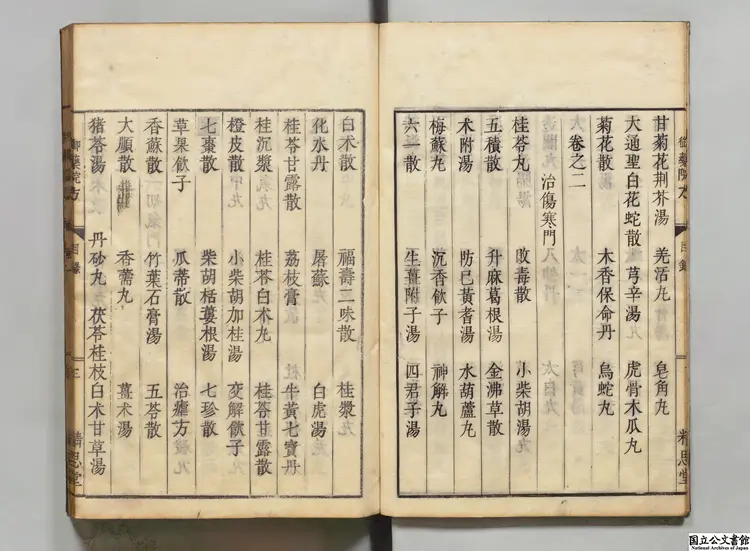 甘菊花荆芥湯 羗活丸 皂角丸
大通聖白花蛇散 芎辛湯 虎骨木瓜丸
菊花散 木香保命丹 烏蛇丸
卷之二
治傷寒門
桂苓丸 敗毒散 小柴胡湯
五積散 升麻葛根湯 金沸草散
术附湯 防巳黃耆湯 水葫蘆丸
梅蘇丸 沉香飮子 神解丸
六一散 生薑附子湯 四君子湯
白术散 福壽二味散 桂漿丸
化水丹 屠蘇 白虎湯
桂苓甘露散 荔枝膏 牛黃七寶丹
桂沉漿 桂苓白术丸 桂苓甘露散
橙皮散 小柴胡加桂湯 变解飮子
七棗散 柴胡栝蔞根湯 七珍散
草果飮子 瓜蒂散 治瘧方
香蘇散 竹葉石膏湯 五苓散
大順散 香薷丸 薑术湯
猪苓湯 丹砂丸 茯苓桂枝白术甘草湯
御藥院方 目錄 三 精思堂
国立公文書館
National Archives of Japan